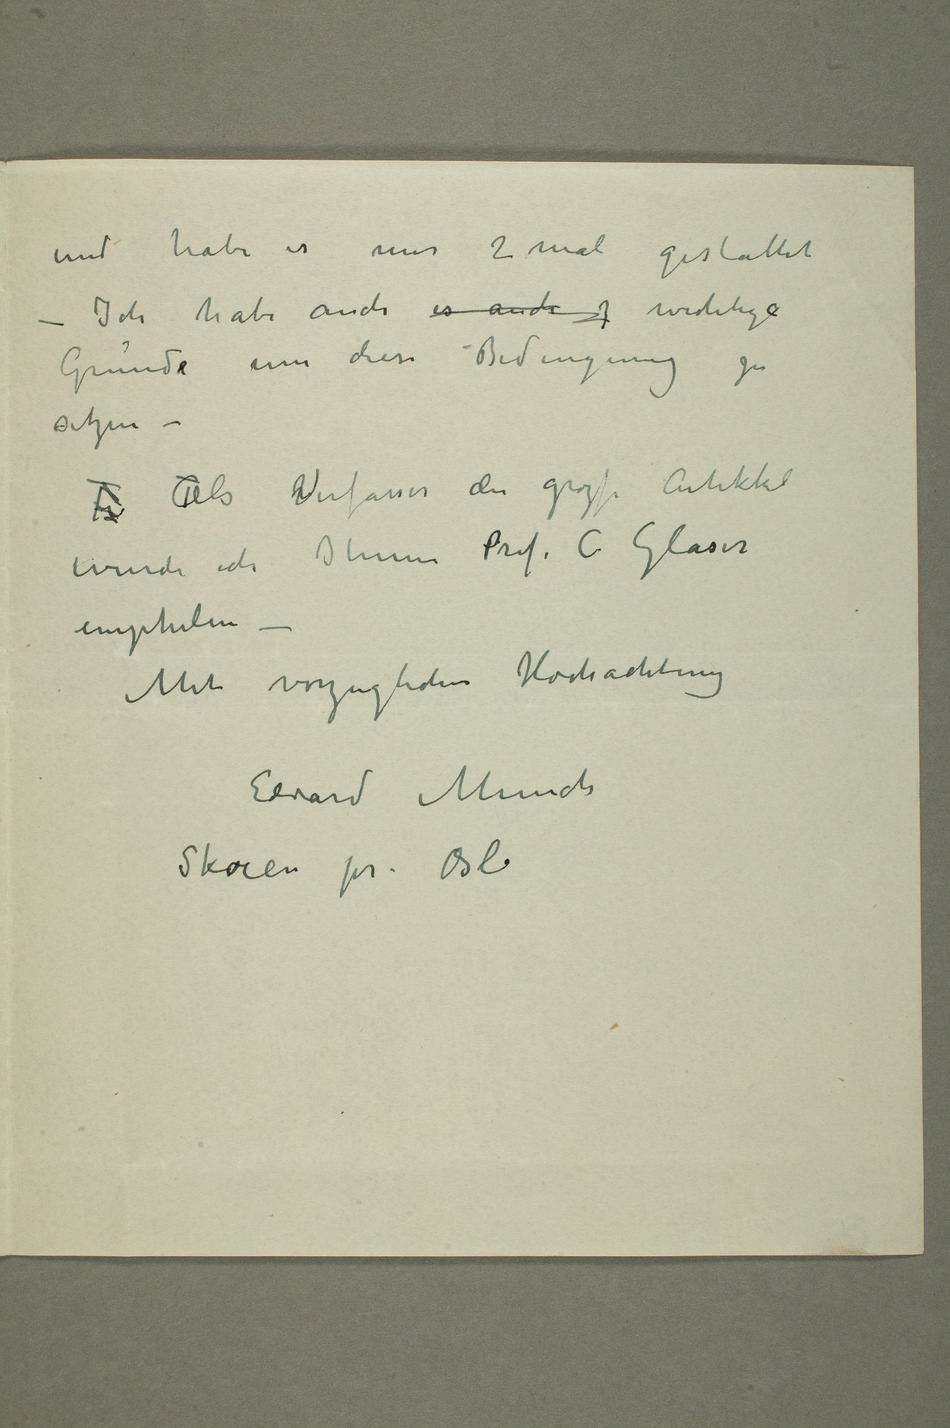 und habe es nur 2 mal gestattet
– Ich habe auch es auch g wichtige
Gründe um diese Bedingung zu
setzen –
Als Verfasser der große Artikkel
wurde ich Ihnen Prof. C Glaser
emphelen –
Mit vorzuglichen Hochachtung
Edvard Munch
Skøien pr. Oslo